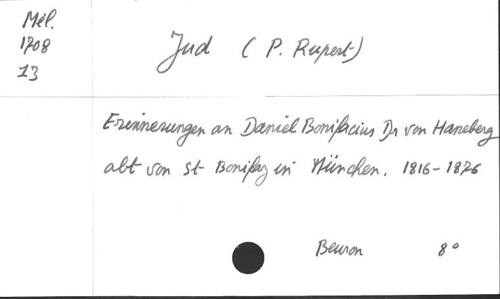 Mél.
1708
13
Jud (P. Rupert)
Erinnerungen an Daniel Bonifacius Dr von Haneberg
abt von St Bonifaz in München. 1816-1876
Beuron 8°